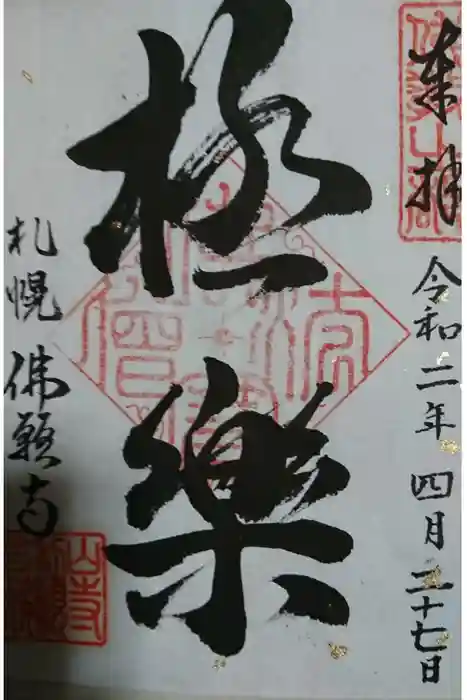 奉拝
令和二年四月二十七日
極楽
札幌佛願寺